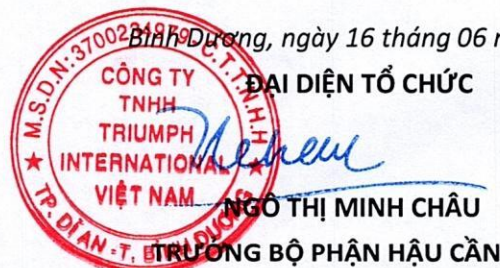 Bình Dương, ngày 16 tháng 06
ĐẠI DIỆN TỔ CHỨC
M.S.D.N: C.T.T.N.H.H
CÔNG TY
TNHH
TRIUMPH
INTERNATIONAL
VIỆT NAM
TP. DĨ AN - T. BÌNH DƯƠNG
NGÔ THỊ MINH CHÂU
TRƯỞNG BỘ PHẬN HẬU CẦN